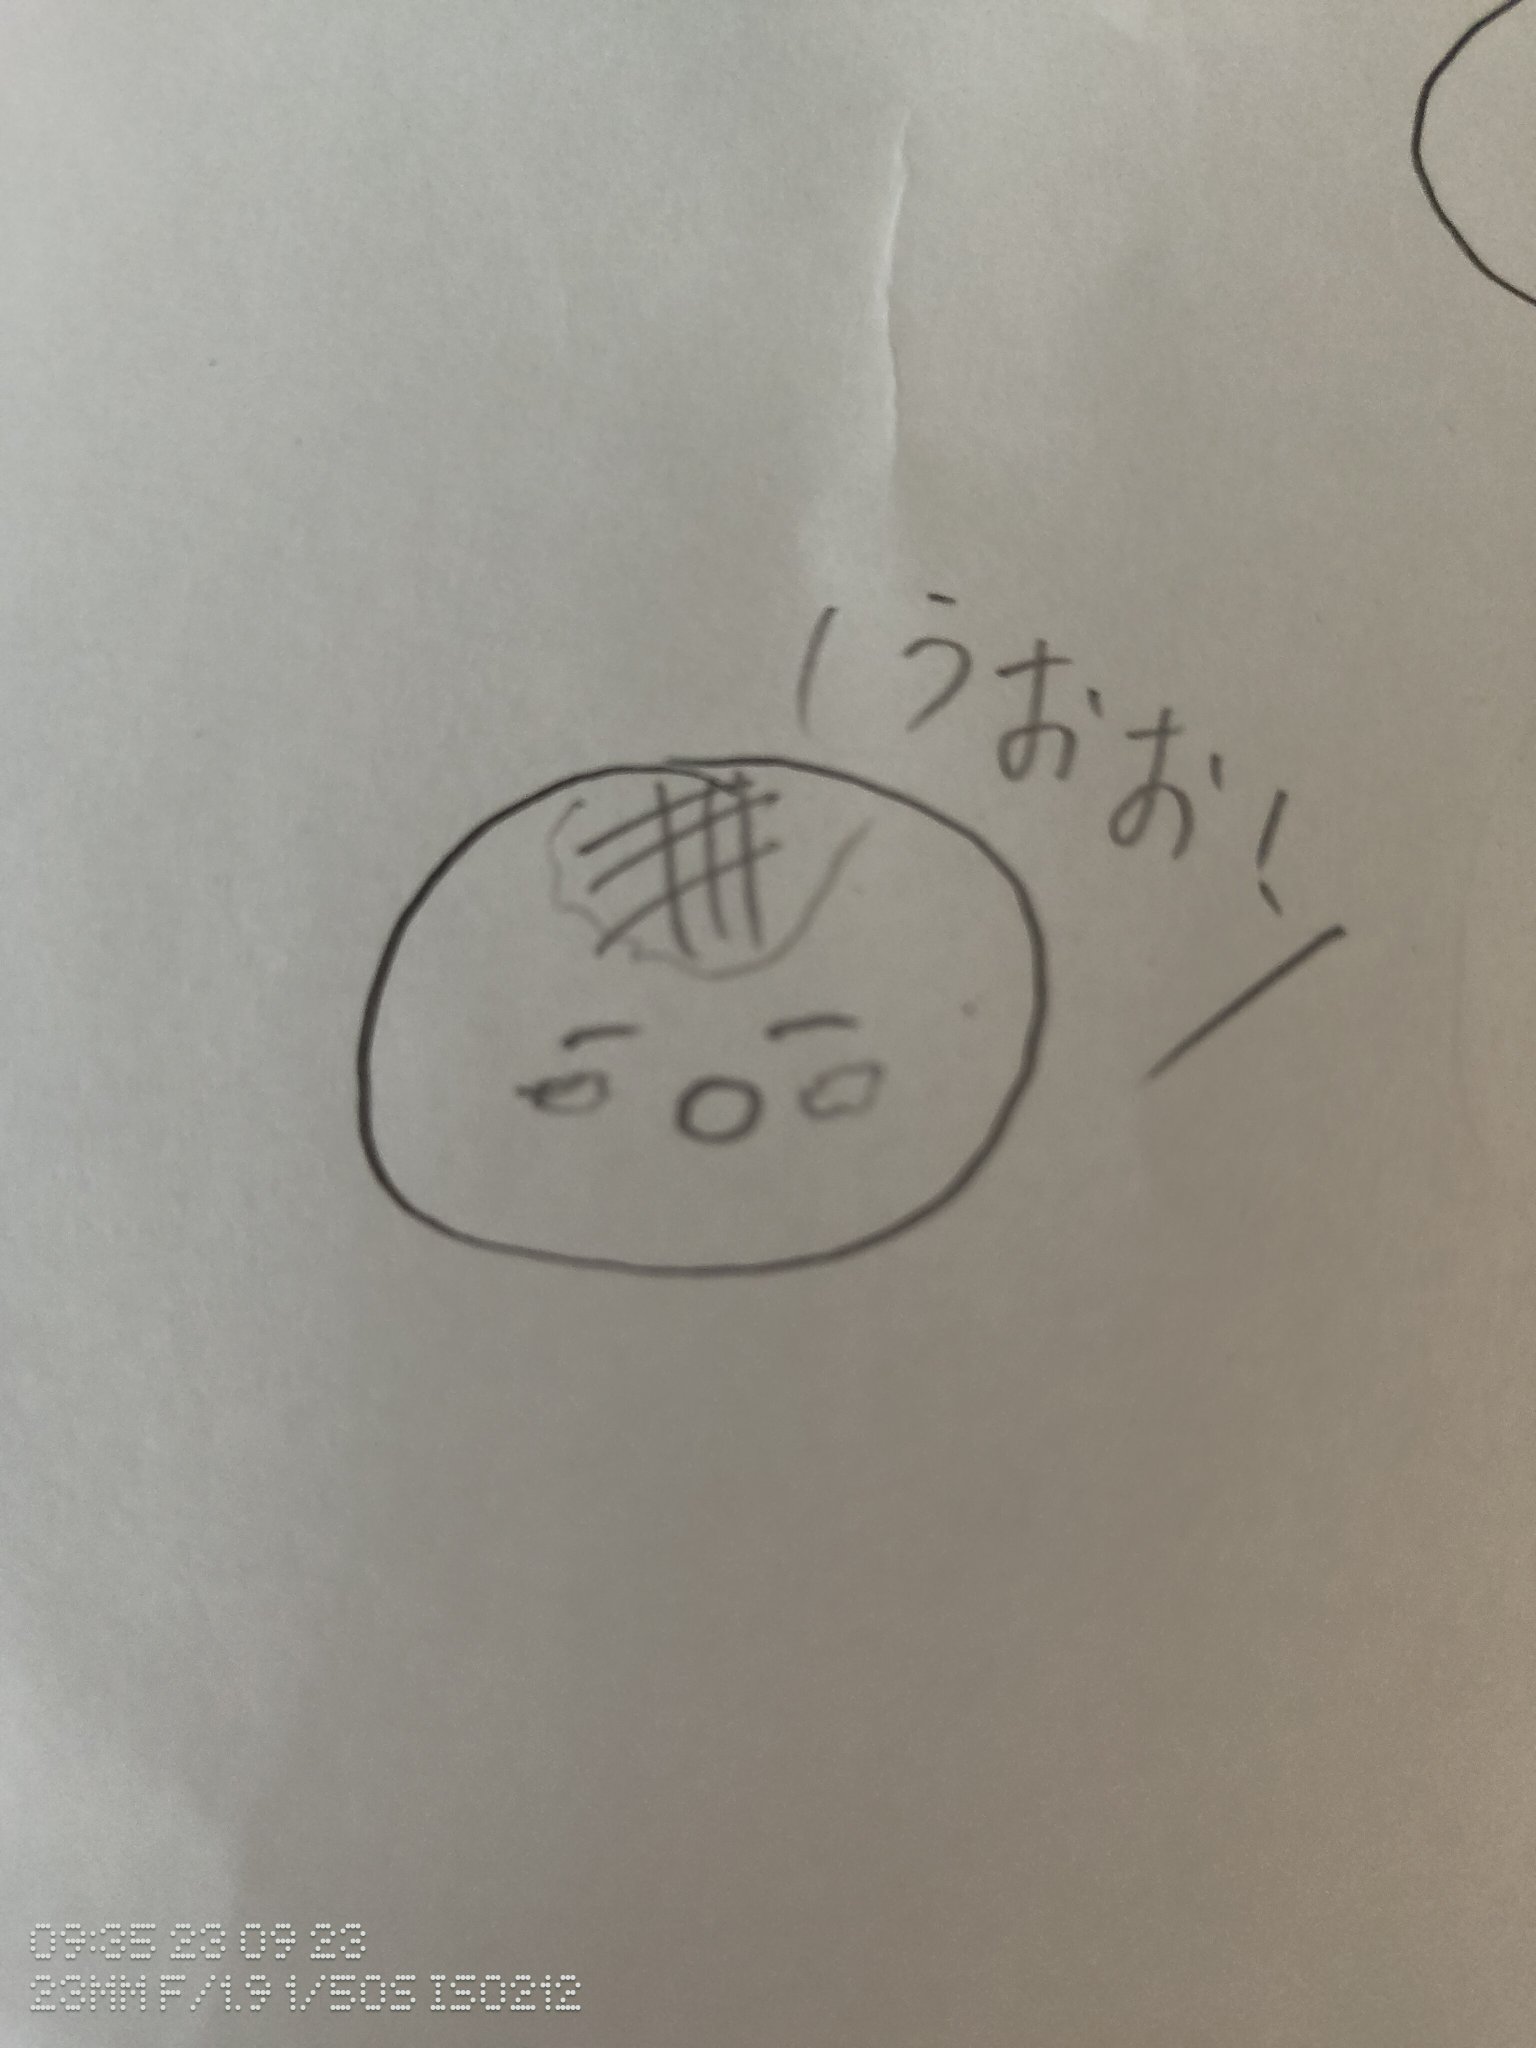 うおお!
09:35 23 09 23
23MM F/1.9 1/50S ISO212